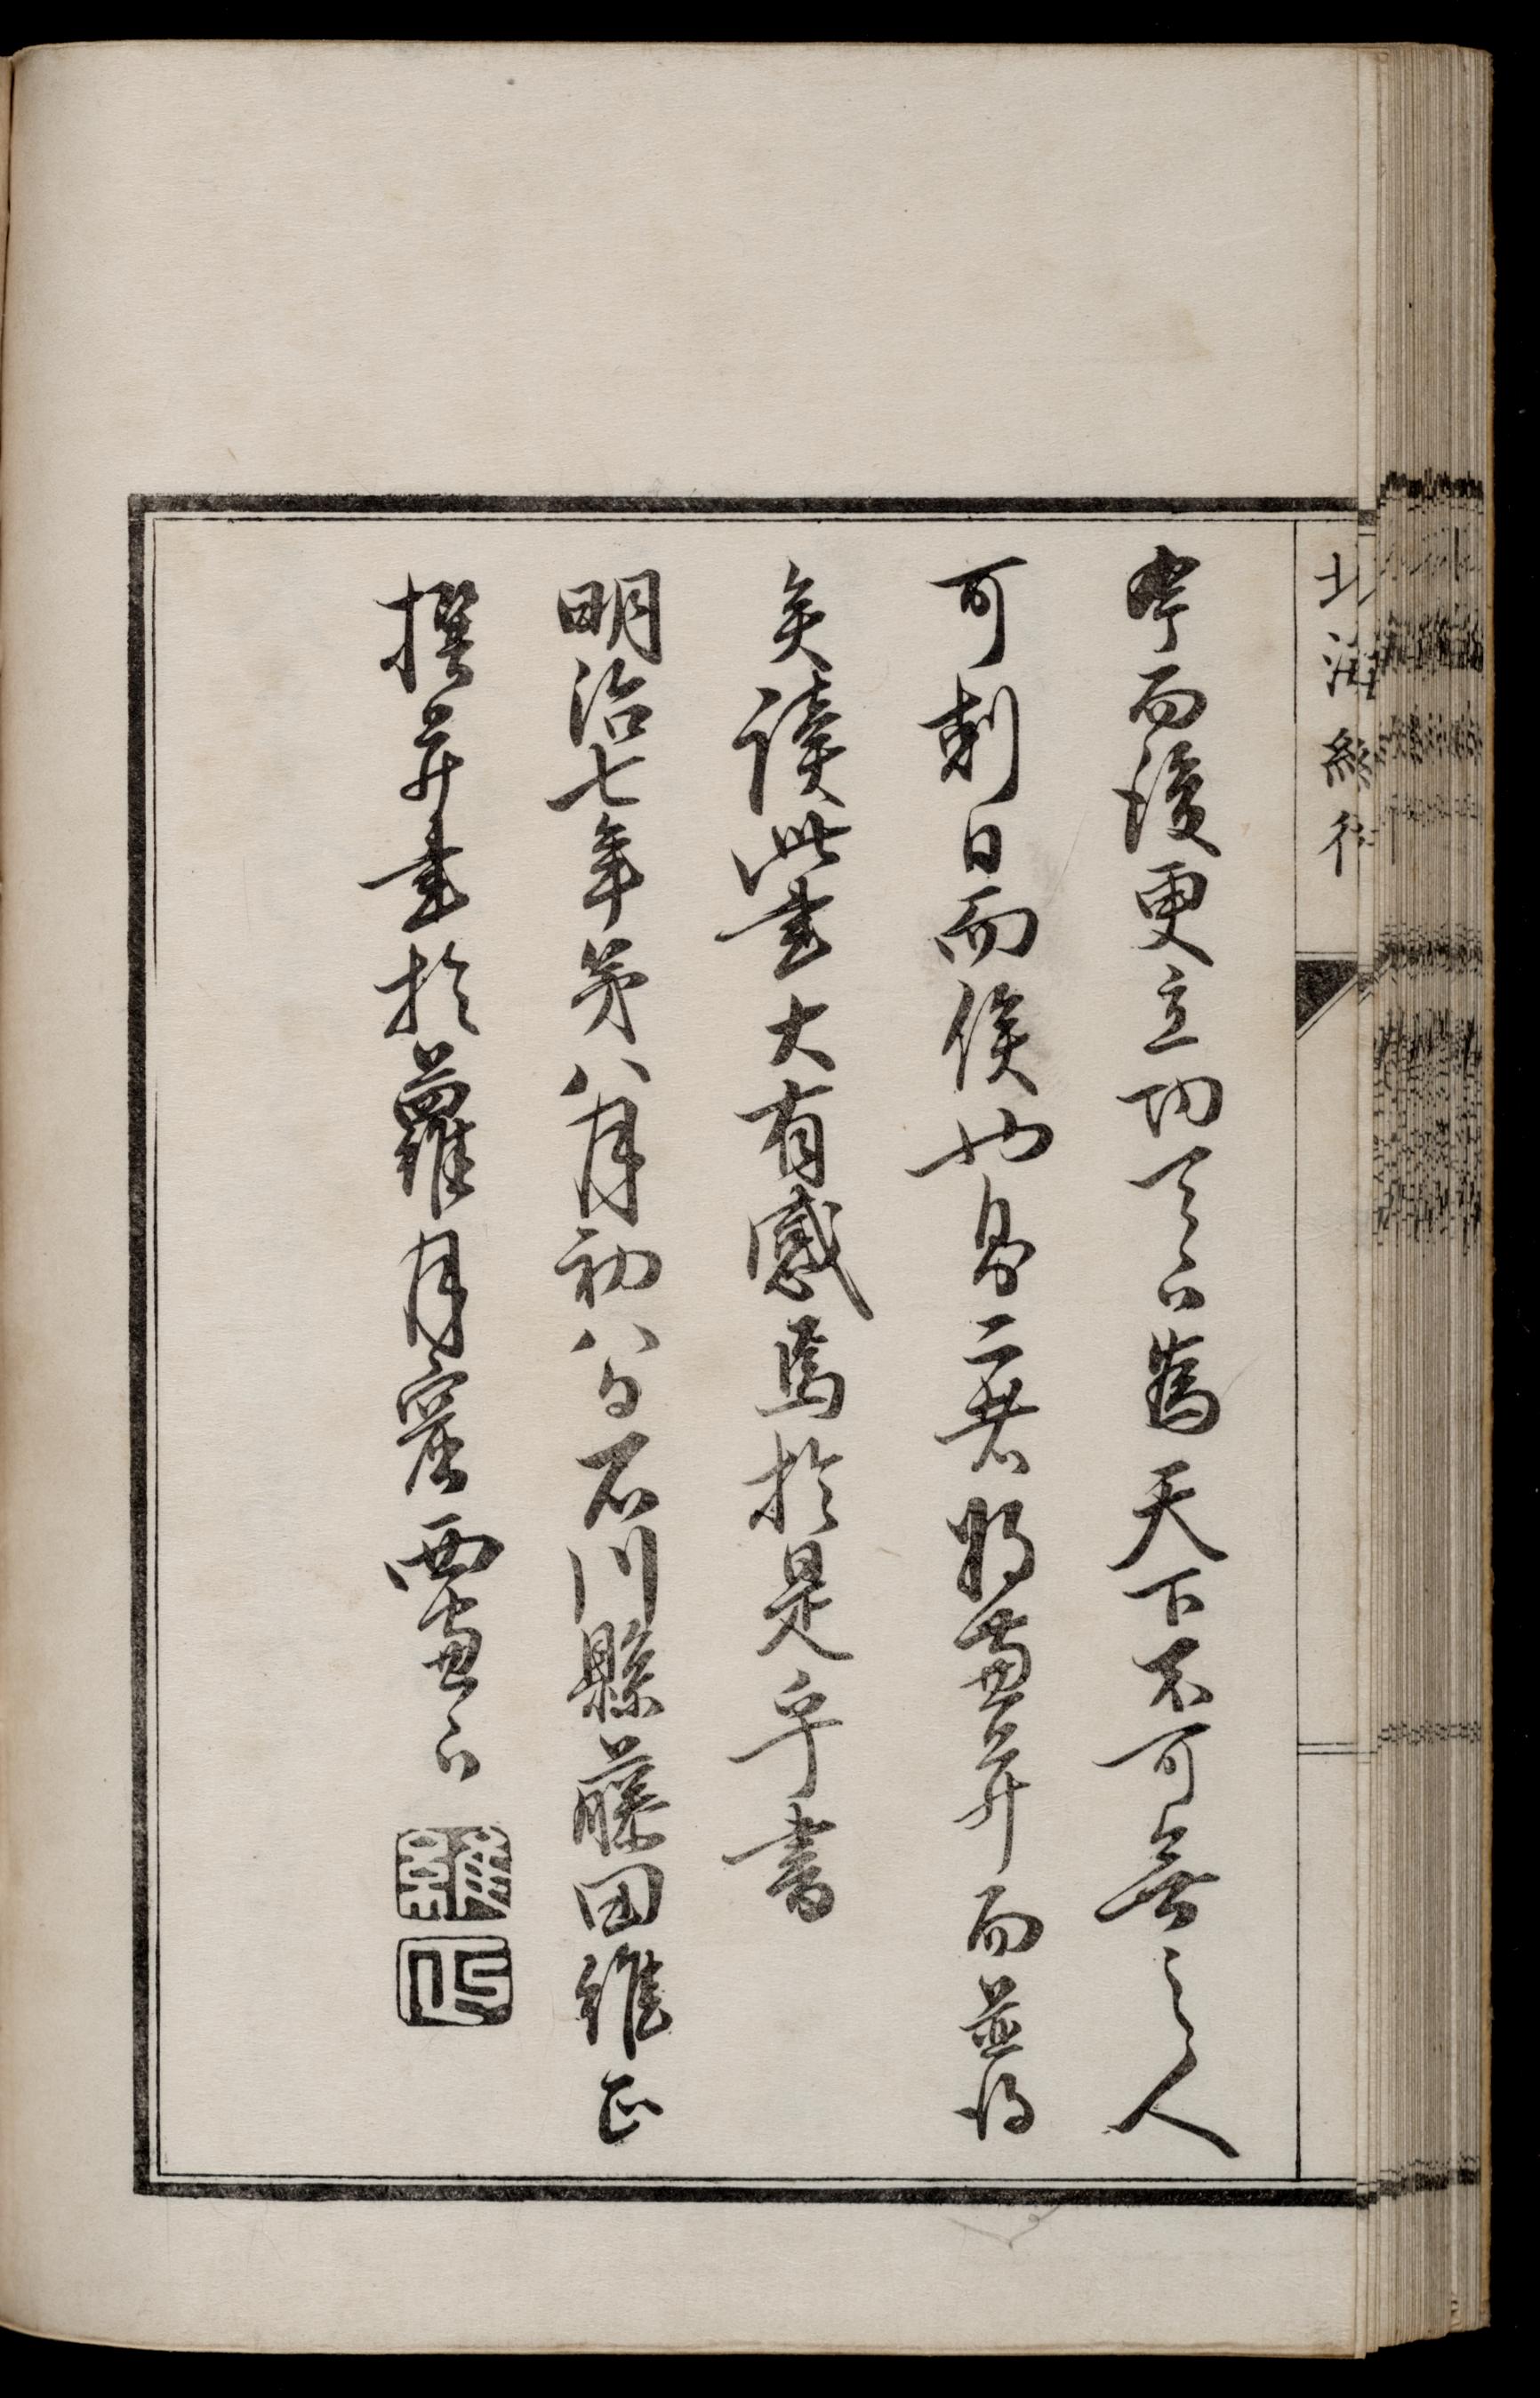 北海紀行
而後更立功天下為天下不可無之人
可刻日而俟也昌二君將書並而並得
矣讀此書大有感焉於是乎書
明治七年第八月初八日石川縣藤田維正
撰并書於蘿月窓西窓下
維正